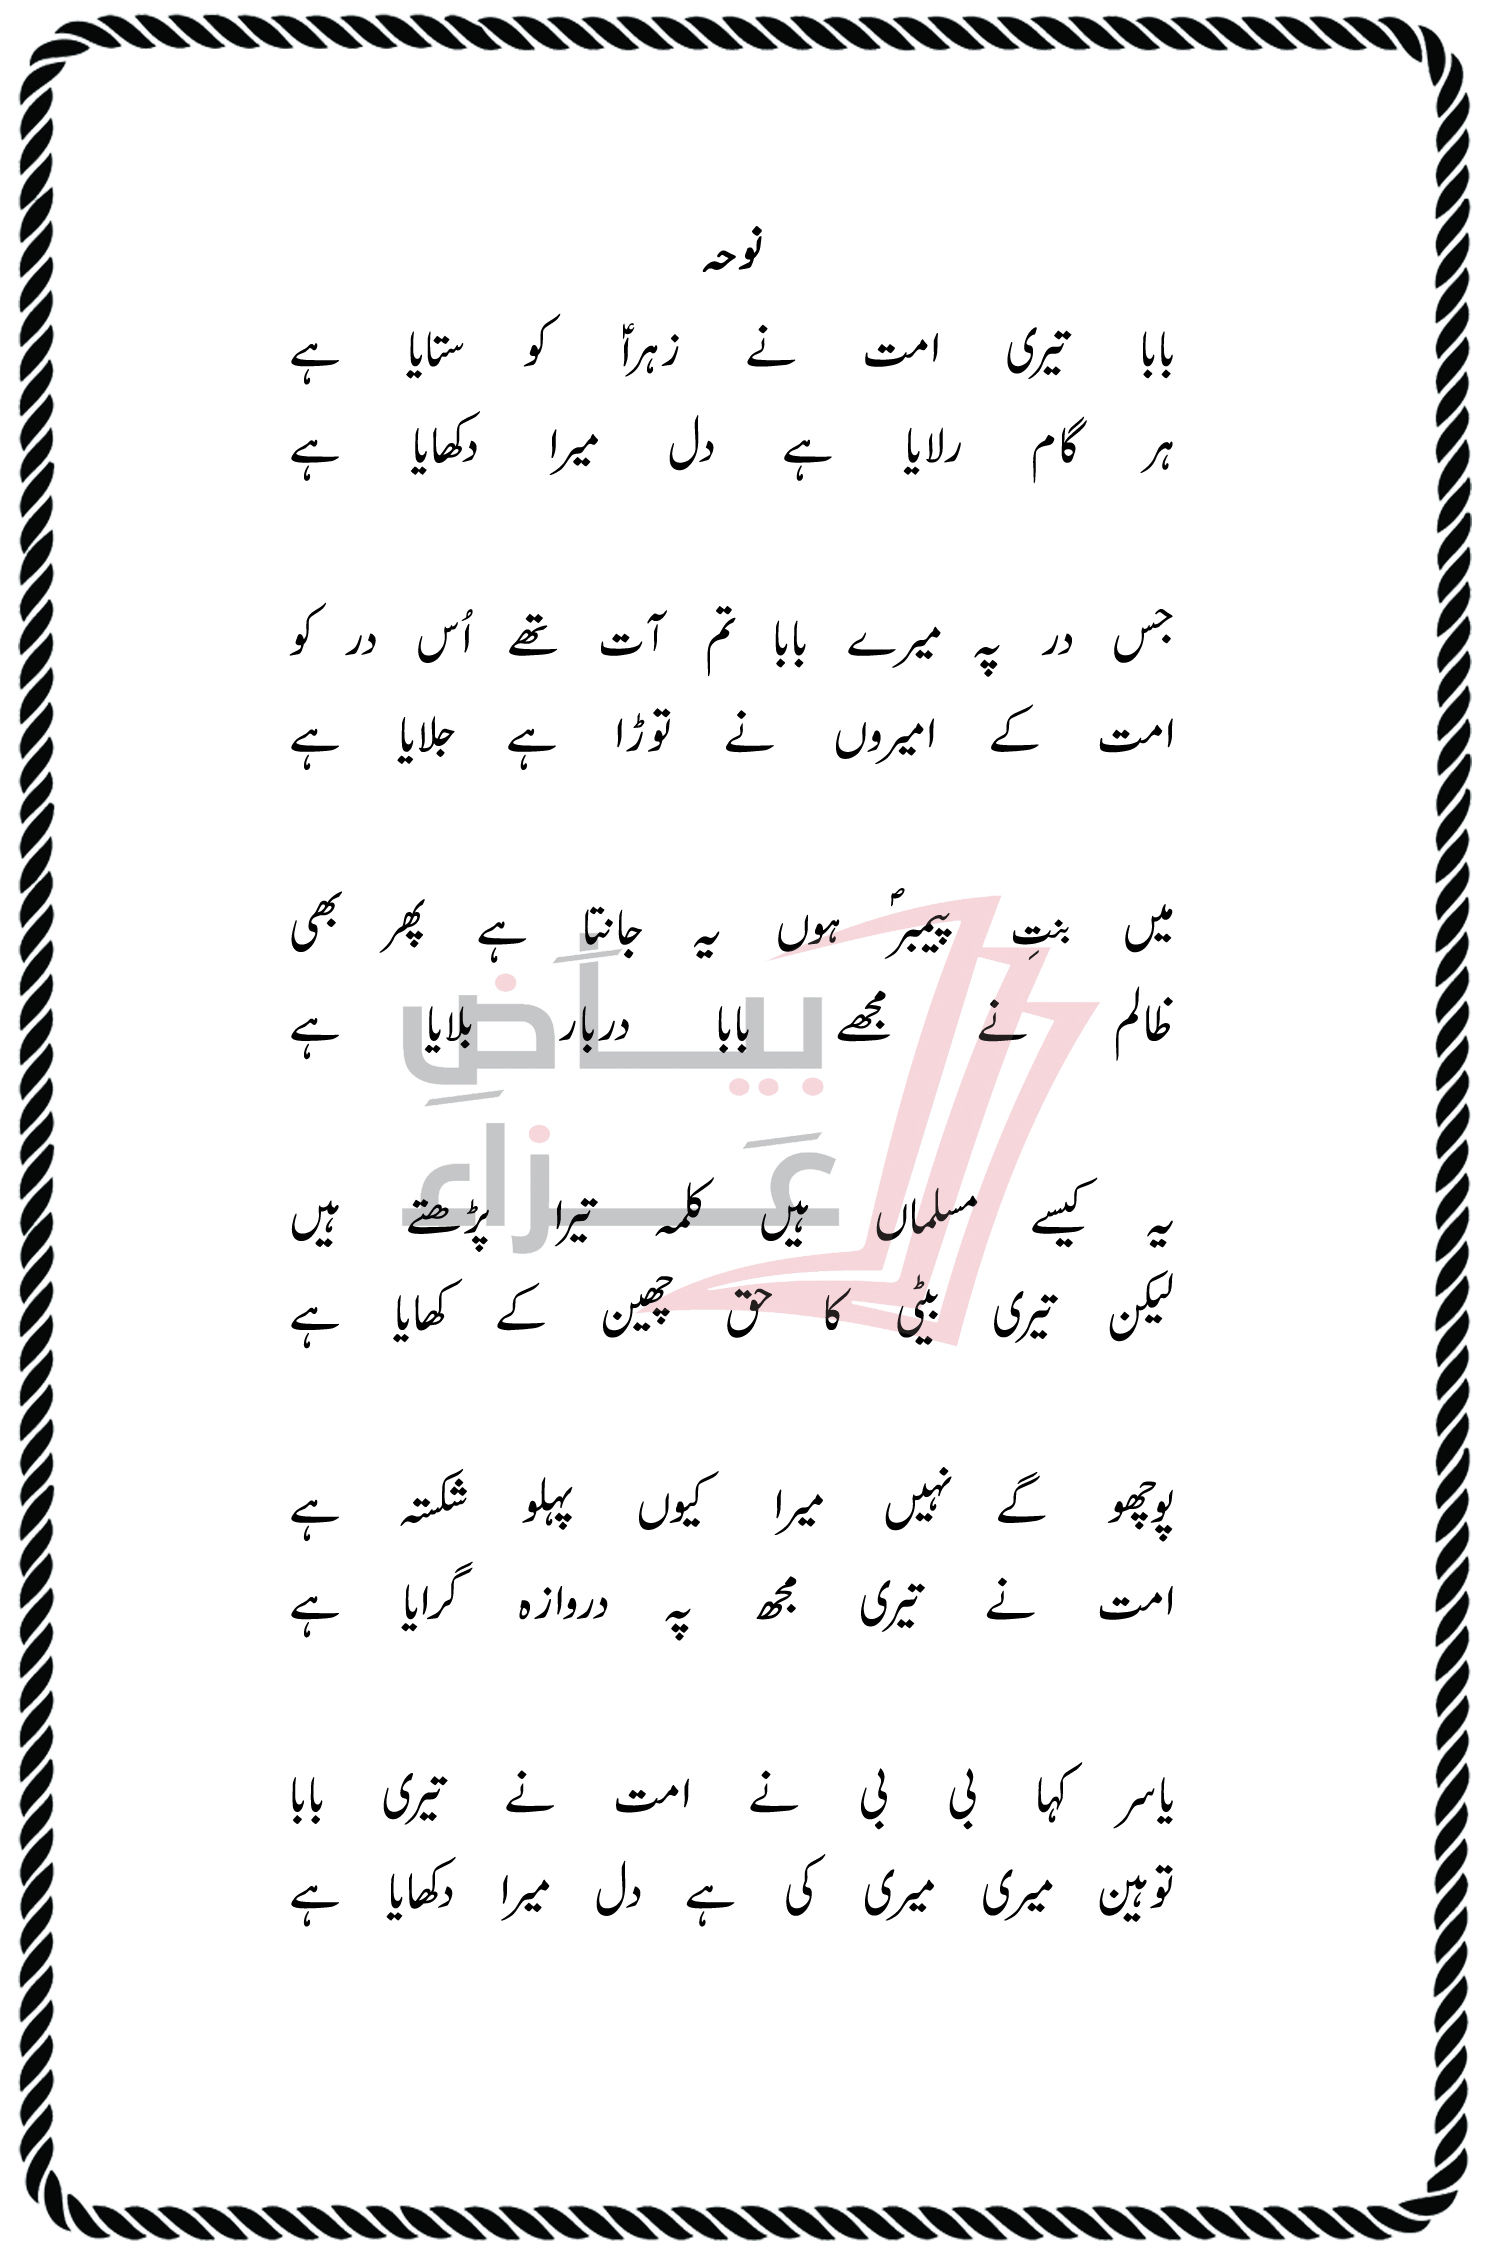 نوحہ
بابا تیری امت نے زہراؑ کو ستایا ہے
ہر گام رلایا ہے دل میرا دکھایا ہے
جس در پہ میرے بابا تم آت تھے اُس در کو
امت کے امیروں نے توڑا ہے جلایا ہے
میں بنتِ پیمبرؐ ہوں یہ جانتا ہے پھر بھی
ظالم نے مجھے بابا دربار بلایا ہے
بَیَاضِ
عَزاء
یہ کیسے مسلماں ہیں کلمہ تیرا پڑھتے ہیں
لیکن تیری بیٹی کا حق چھین کے کھایا ہے
پوچھو گے نہیں میرا کیوں پہلو شکستہ ہے
امت نے تیری مجھ پہ دروازہ گرایا ہے
یاسر کہا بی بی نے امت نے تیری بابا
توہین میری میری کی ہے دل میرا دکھایا ہے